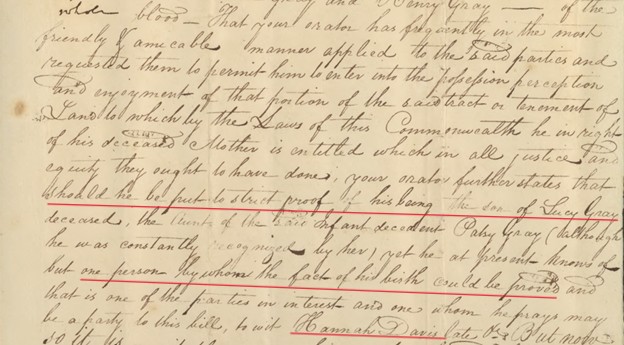 whole blood - That your orator has frequently in the most
friendly & amicable manner applied to the said parties and
requested them to permit him to enter into the possession perception
and enjoyment of that portion of the said tract or tenement of
Land to which by the Laws of this Commonwealth he in right
of his deceased Mother is entitled which in all justice and
equity they ought to have done, your orator further states that
should he be put to strict proof of his being the son of Lucy Gray
deceased, the Aunt of the said Infant decedent Patsy Gray (although
he was constantly recognized by her) yet he at present knows of
but one person by whom the fact of his birth could be proved and
that is one of the parties in interest and one whom he prays may
be a party to this bill, to wit Hannah Davis late But now